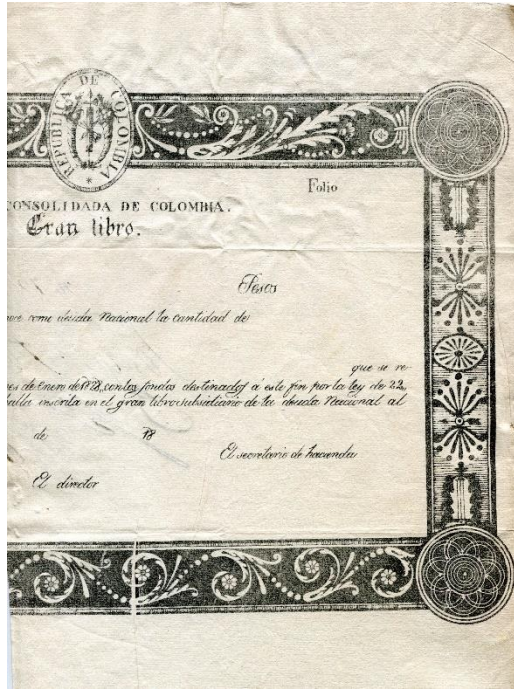 REPÚBLICA DE COLOMBIA
Folio
CONSOLIDADA DE COLOMBIA.
Gran libro.
Pesos
noce como deuda Nacional la cantidad de
que se re
es de Enero de 1828, con los fondos destinados á este fin por la ley de 22
halla inscrita en el gran libro subsidiario de la deuda Nacional al
de 18
El secretario de hacienda
El director